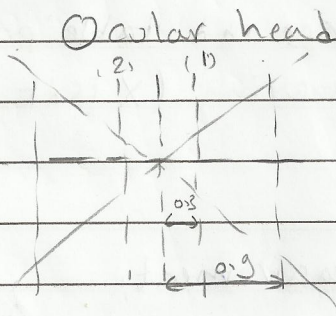 Ocular head
(2) (1)
0.3
0.9